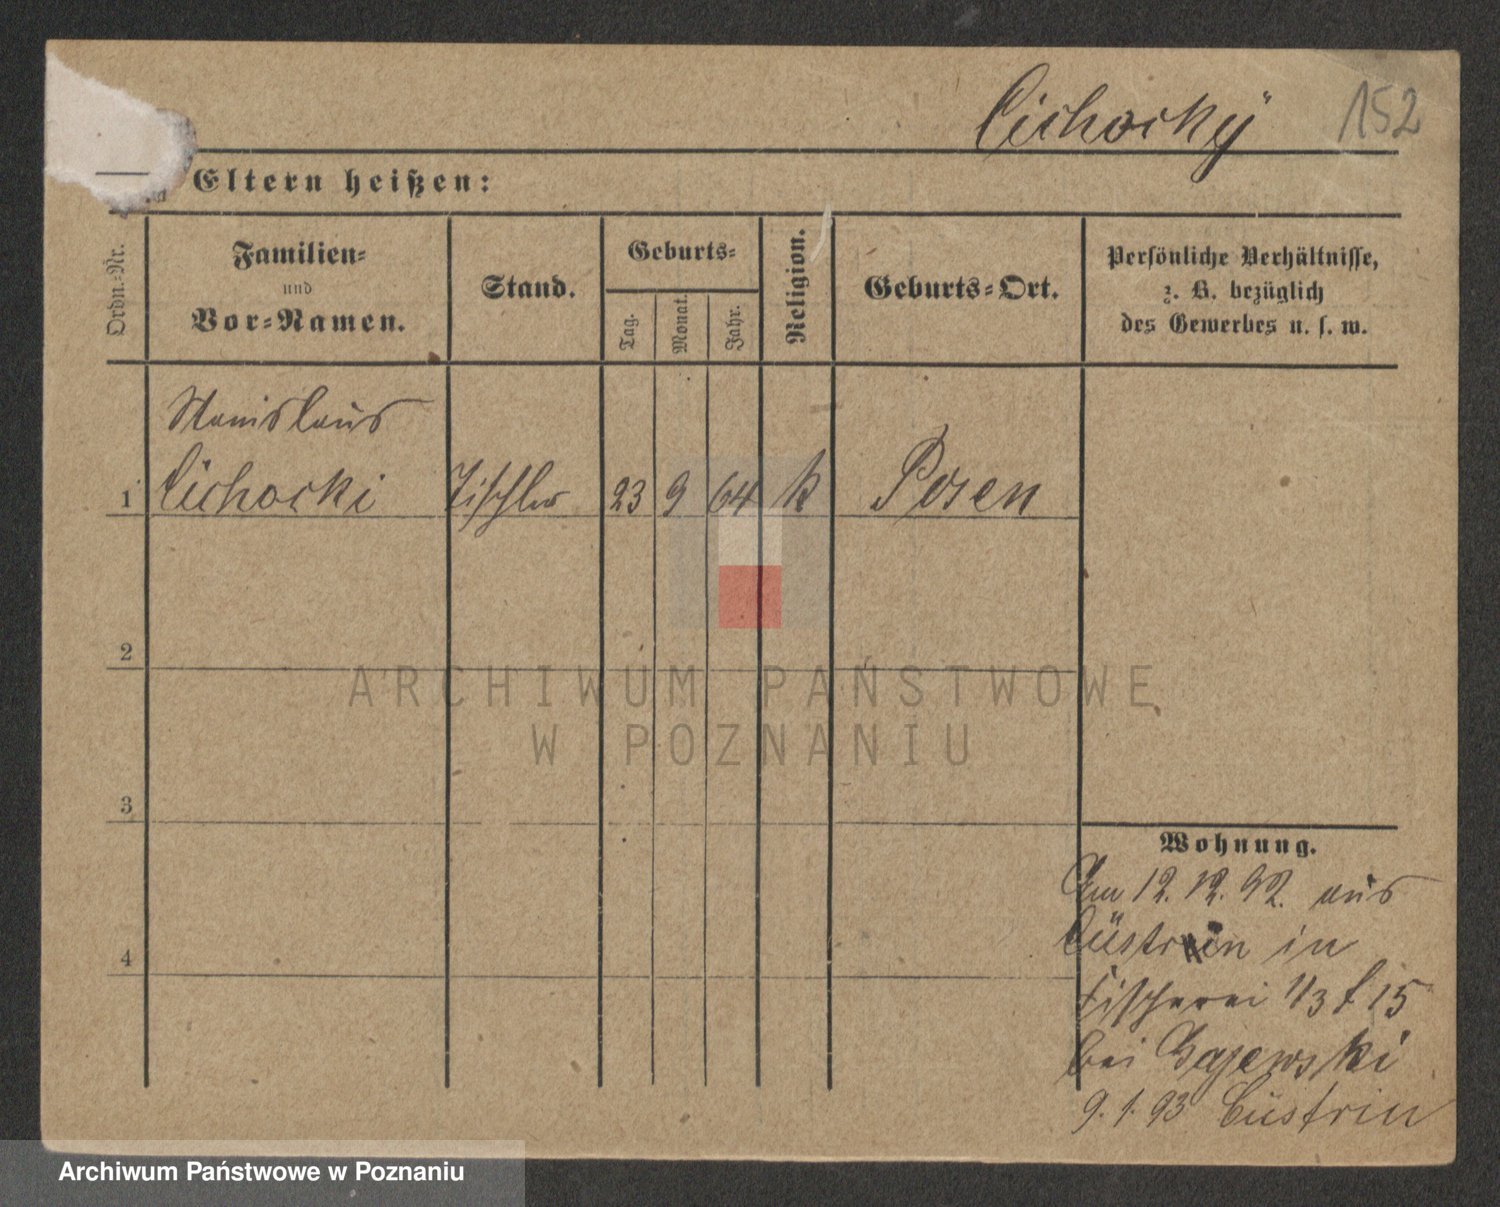 Cichocky
152
Eltern heißen:
Ordn.-Nr.
Familien-
und
Vor-Namen.
Stand.
Geburts-
Tag.
Monat.
Jahr.
Religion.
Geburts-Ort.
Persönliche Verhältnisse,
z. B. bezüglich
des Gewerbes u. s. w.
Stanislaus
1 Cichocki Tischler 23 9 64 k Posen
2
3
4
Wohnung.
Am 12. 12. 92. aus
Cüstrin in
Fischerei 1/3 b 15
bei Gajewski
9. 1. 93 Cüstrin
ARCHIWUM PAŃSTWOWE
W POZNANIU
Archiwum Państwowe w Poznaniu